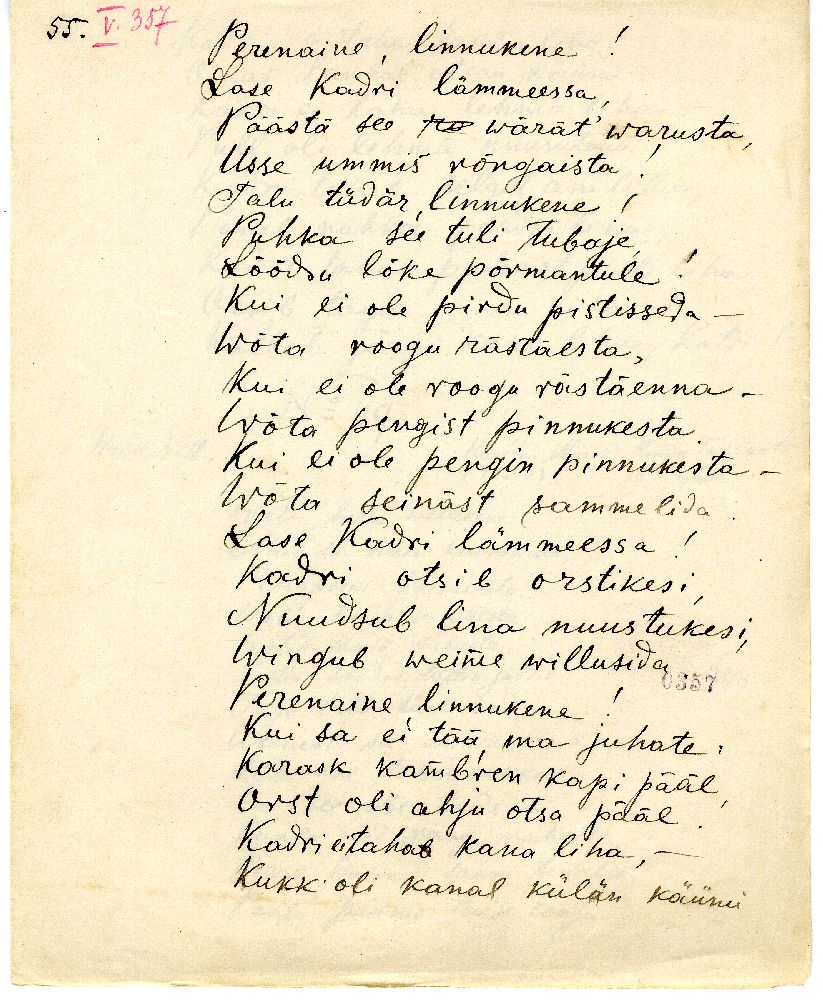 55. V. 357
Perenaine, linnukene!
Lase Kadri lämmeessa,
Päästä see ro wärät' warusta,
Usse ummis rõngaista!
Talu tüdär, linnukene!
Puhka see tuli tubaje,
Lõõdsu lõke põrmantule!
Kui ei ole pirdu pistisseda —
Wõta roogu rästäesta,
Kui ei ole roogu rästäenna –
Wõta pengist pinnukesta
Kui ei ole pengin pinnukesta –
Wõta seinäst sammelida.
Lase Kadri lämmeessa!
Kadri otsib orstikesi,
Nuudsub lina nuustukesi,
Wingub weime willusida
0357
Perenaine, linnukene!
Kui sa ei tää, ma juhate:
Karask kambren kapi pääl,
Orst oli ahju otsa pääl.
Kadri ei taha kana liha, —
Kukk oli kanal külän käünü